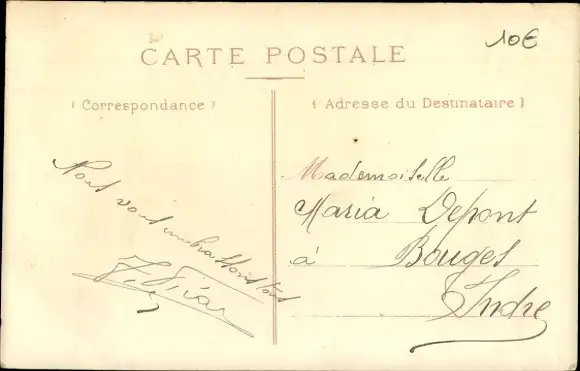 10€
CARTE POSTALE
( Correspondance )
( Adresse du Destinataire )
Nous vous embrassons tous
Mademoiselle
Maria Depont
à Bouges
Indre